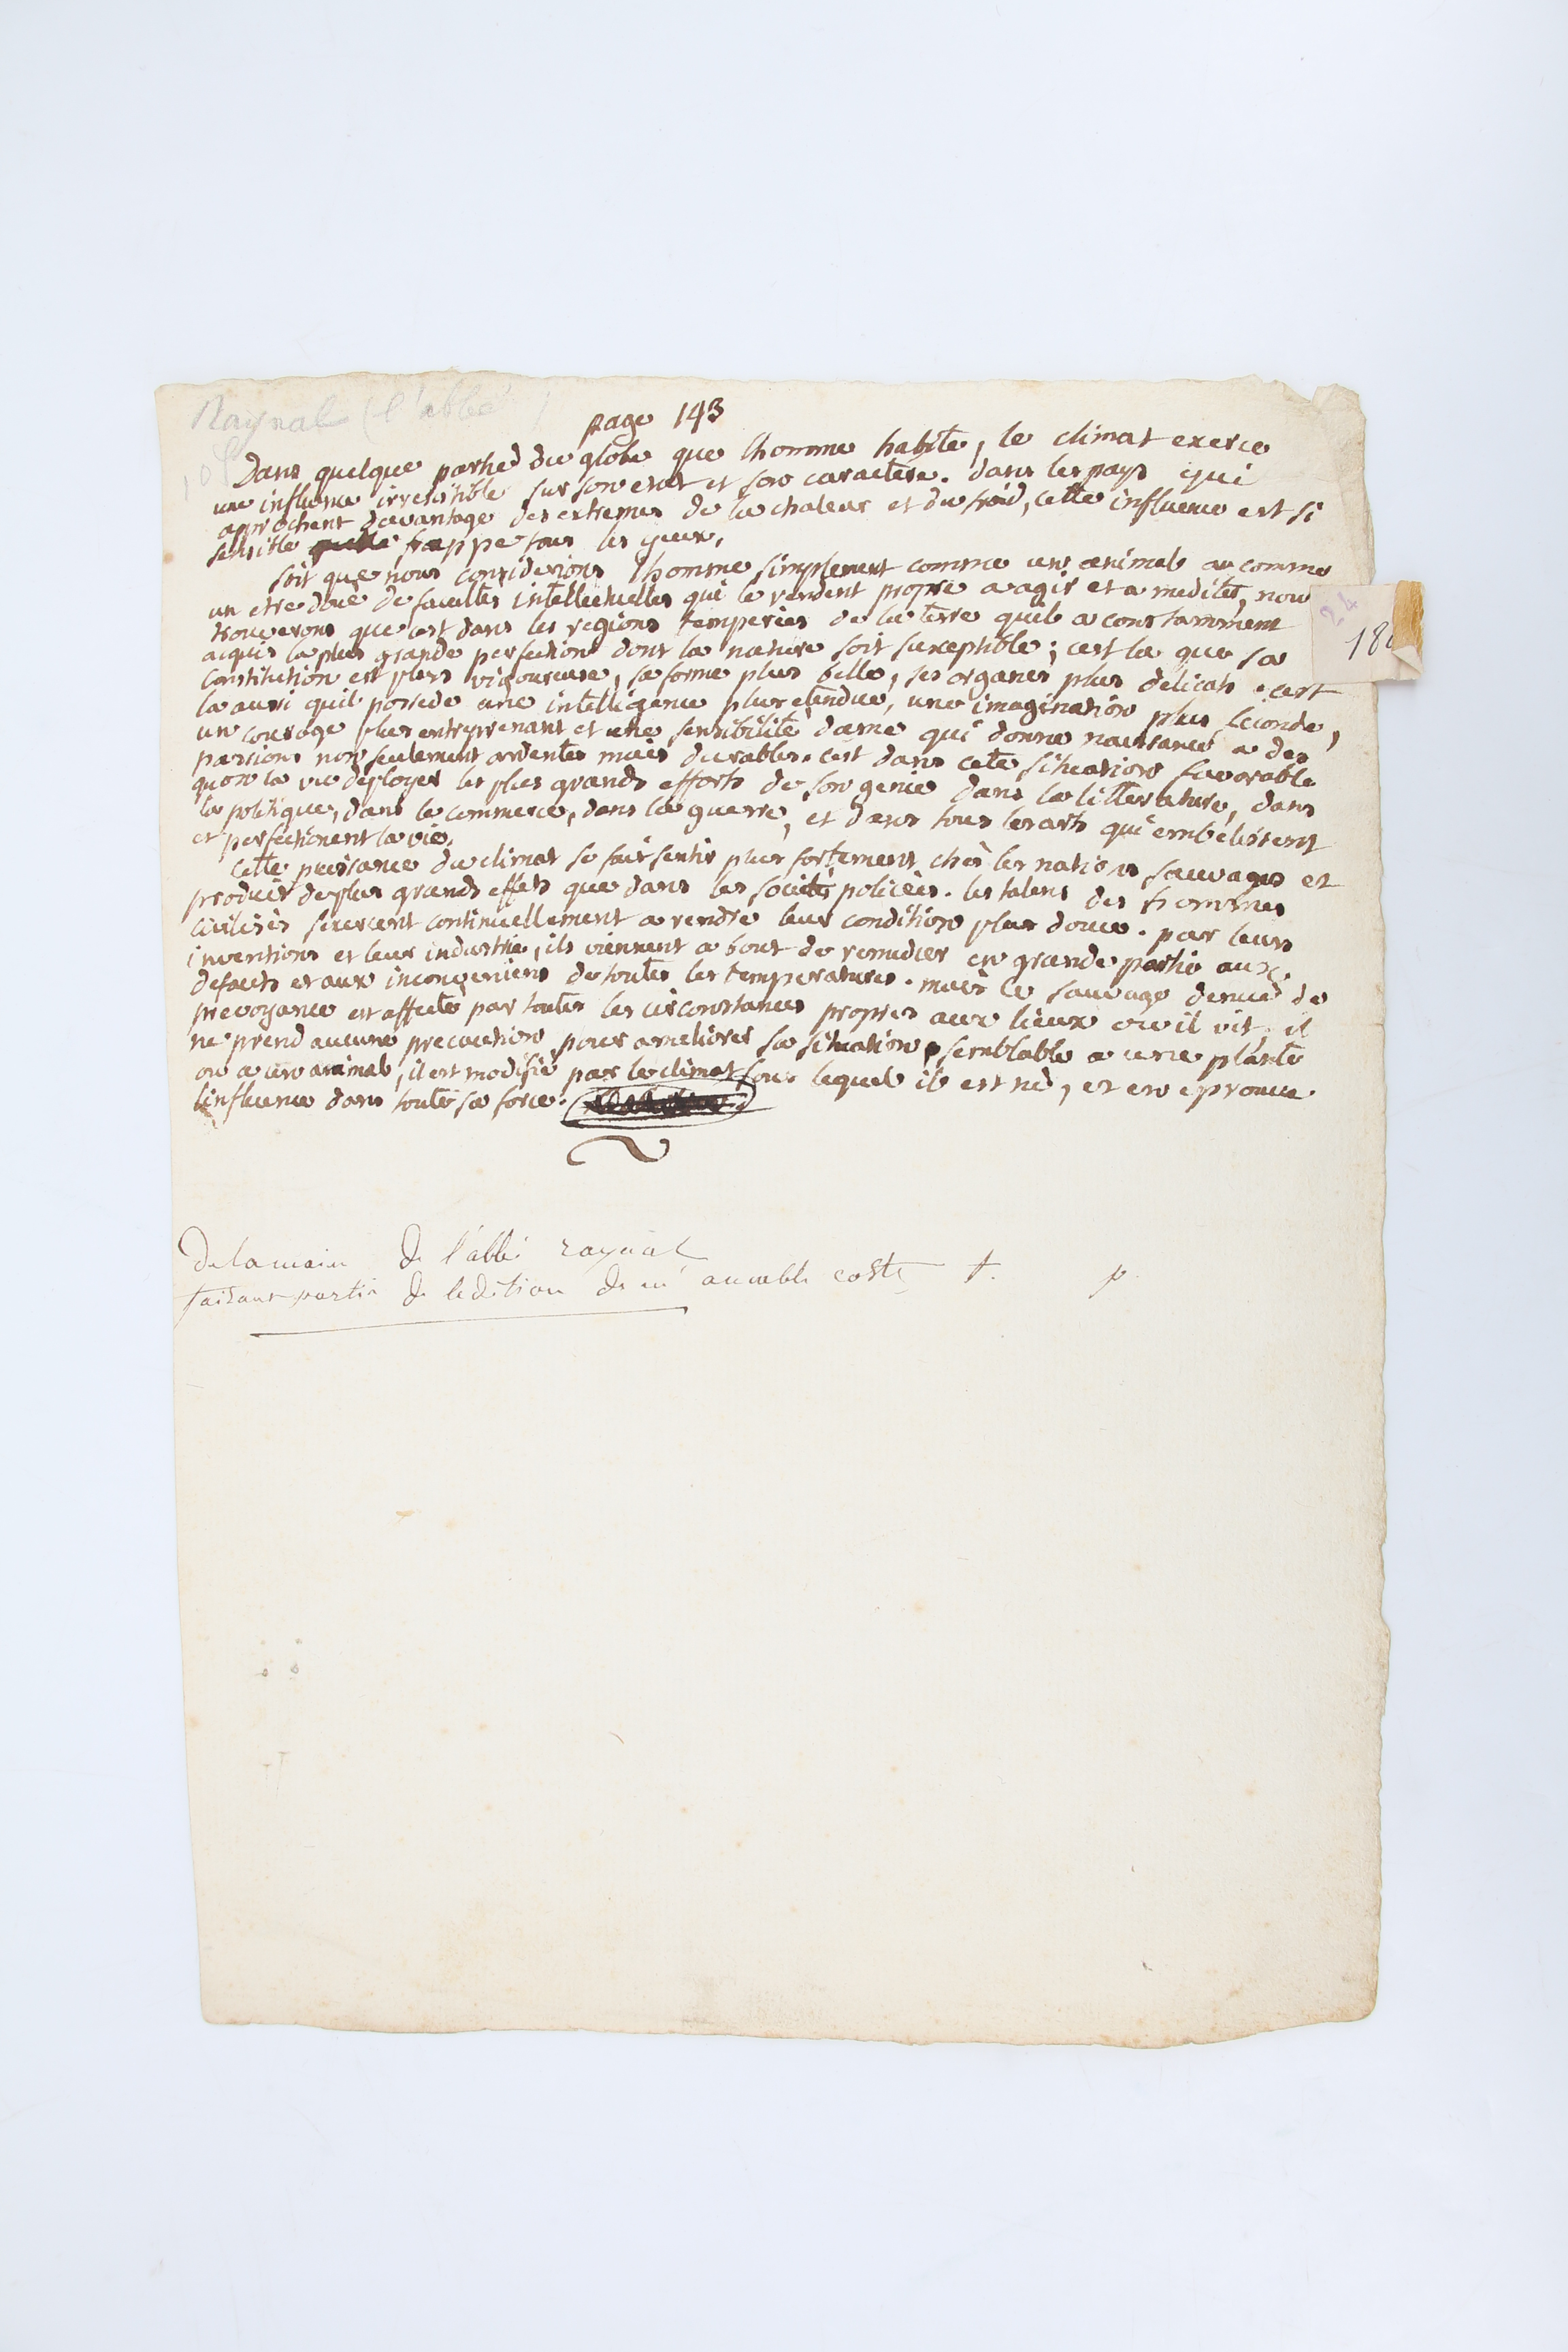 Raynal (l'abbé)
page 143
Dans quelque partied du globe que lhomme habite, le climat exerce
une influence irresistible sur son etat et son caractere. dans les pays qui
approchent davantage des extremes de la chaleur et du froid, cette influence est si
sensible quelle frappe tous les yeux.
soit que nous considerions lhomme simplement comme un animal ou comme
un etre doué de facultes intellectuelles qui le rendent propre a agir et a mediter, nous
trouverons que cest dans les regions temperées de la terre quil a constamment
acquis la plus grande perfection dont la nature soit susceptible; cest la que sa
constitution est plus vigoureuse, sa forme plus belle, ses organes plus delicats. cest
la aussi quil possede une intelligence plus etendue, une imagination plus feconde,
un courage plus entreprenant et une sensibilité dame qui donne naissance a des
passions non seulement ardentes mais durables. cest dans cete situation favorable
quon la vu deployer les plus grands efforts de son genie dans la litterature, dans
la politique, dans le commerce, dans la guerre, et dans tous les arts qui embelissent
et perfectionent la vie.
Cette puissance du climat se fait sentir plus fortement chés les nations sauvages et
produit de plus grands effets que dans les societés policées. les talens des hommes
civilisés sexercent continuellement a rendre leur condition plus douce. par leurs
inventions et leur industrie, ils viennent a bout de remedier en grande partie aux
defauts et aux inconveniens de toutes les temperatures. mais le sauvage denué de
prevoyance est affecté par toutes les circonstances propres aux lieux ou il vit; il
ne prend aucune precaution pour ameliorer sa situation semblable a une plante
ou a un animal, il est modifié par le climat sous lequel il est né, et en eprouve
linfluence dans toute sa force.
De la main de l'abbé raynal
faisant partie de ledition de m' aimable coste t. p.
24
18